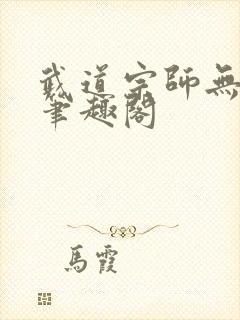 武道宗師無
筆趣閣
馬霞